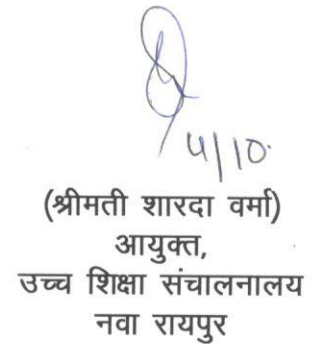 4/10.
(श्रीमती शारदा वर्मा)
आयुक्त,
उच्च शिक्षा संचालनालय
नवा रायपुर